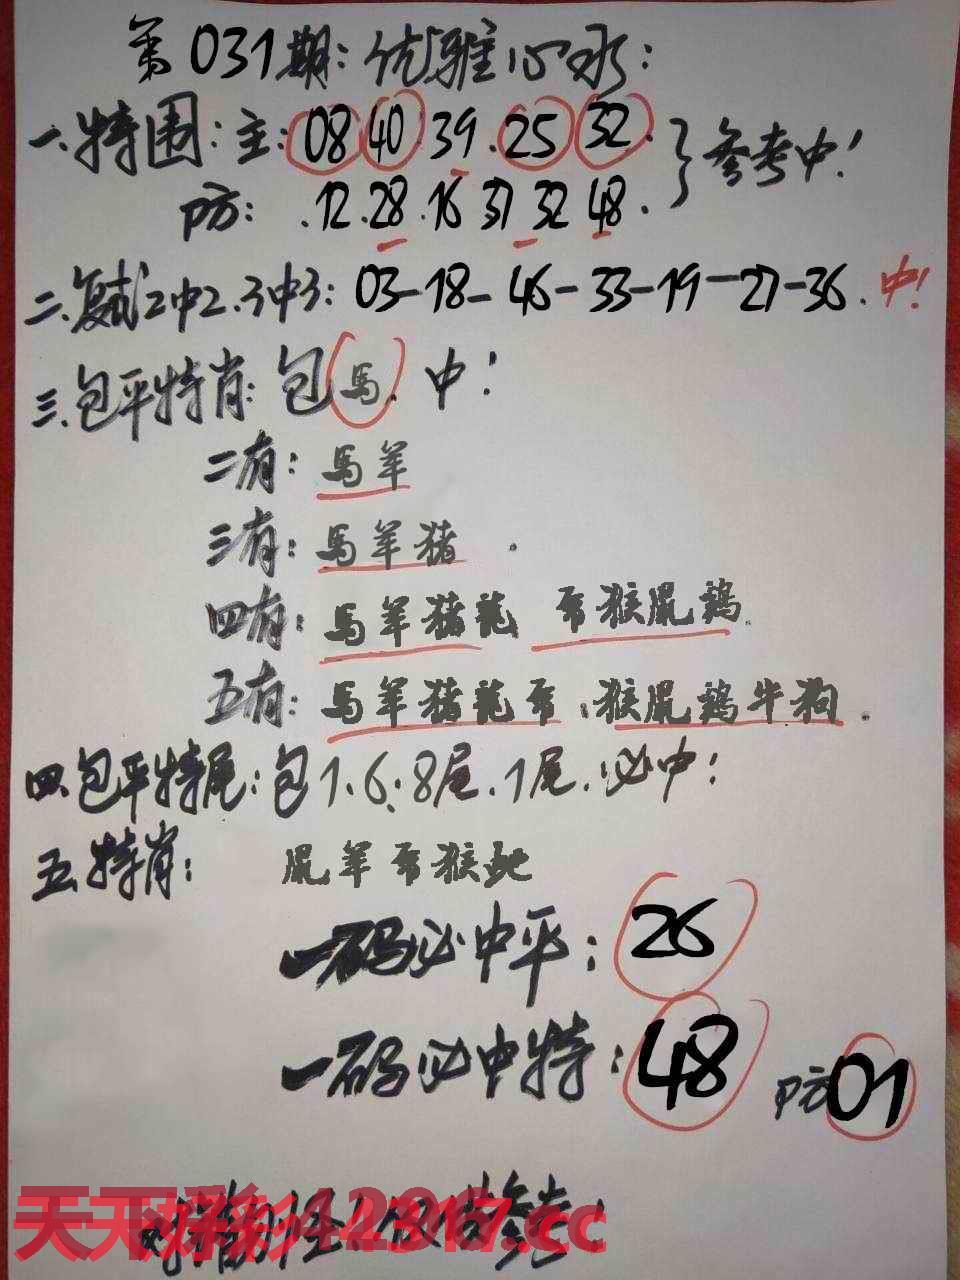 第031期:优雅心水:
一.特围:主:08 40.39.25 32.}参考中!
防: .12.28.16 37 32 48.
二.复式2中2.3中3:03-18-46-33-19-27-36.中!
三.包平特肖:包馬.中!
二有:馬羊
三有:馬羊猪.
四有:馬羊猪龍 猴鼠鶏.
五有:馬羊猪龍 .猴鼠鶏牛狗.
四.包平特尾:包1.6.8尾.1尾.必中!
五.特肖: 鼠羊 猴蛇
一码必中平:26
一码必中特:48 防01
天天好彩 .cc